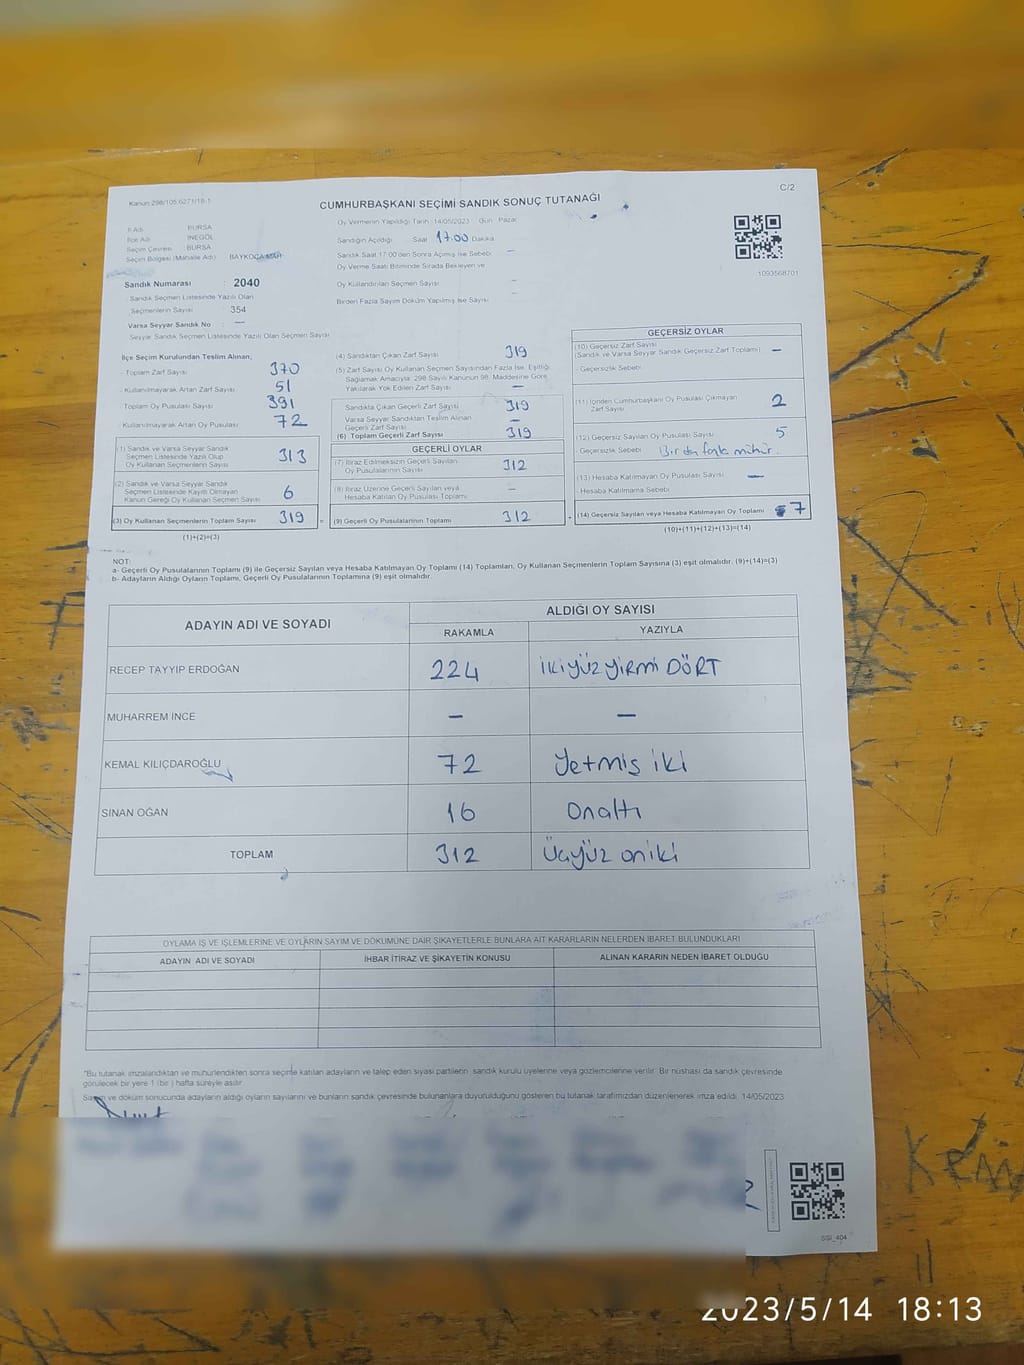 Kanun:298/105,6271/18-1
C/2
CUMHURBAŞKANI SEÇİMİ SANDIK SONUÇ TUTANAĞI
İl Adı : BURSA
İlçe Adı : İNEGÖL
Seçim Çevresi : BURSA
Seçim Bölgesi (Mahalle Adı) : BAYKOCA MAH
Sandık Numarası : 2040
Sandık Seçmen Listesinde Yazılı Olan
Seçmenlerin Sayısı : 354
Varsa Seyyar Sandık No : —
Seyyar Sandık Seçmen Listesinde Yazılı Olan Seçmen Sayısı
Oy Vermenin Yapıldığı Tarih :14/05/2023 Gün : Pazar
Sandığın Açıldığı Saat 17.00 Dakika
Sandık Saat 17:00'den Sonra Açılmış İse Sebebi —
Oy Verme Saati Bitiminde Sırada Bekleyen ve
Oy Kullandırılan Seçmen Sayısı —
Birden Fazla Sayım Döküm Yapılmış İse Sayısı —
1093568701
İlçe Seçim Kurulundan Teslim Alınan;
Toplam Zarf Sayısı 370
Kullanılmayarak Artan Zarf Sayısı 51
Toplam Oy Pusulası Sayısı 391
Kullanılmayarak Artan Oy Pusulası 72
(1) Sandık ve Varsa Seyyar Sandık
Seçmen Listesinde Yazılı Olup
Oy Kullanan Seçmenlerin Sayısı 313
(2) Sandık ve Varsa Seyyar Sandık
Seçmen Listesinde Kayıtlı Olmayan
Kanun Gereği Oy Kullanan Seçmen Sayısı 6
(3) Oy Kullanan Seçmenlerin Toplam Sayısı 319
(1)+(2)=(3)
(4) Sandıktan Çıkan Zarf Sayısı 319
(5) Zarf Sayısı Oy Kullanan Seçmen Sayısından Fazla İse, Eşitliği
Sağlamak Amacıyla; 298 Sayılı Kanunun 98. Maddesine Göre
Yakılarak Yok Edilen Zarf Sayısı —
Sandıkta Çıkan Geçerli Zarf Sayısı 319
Varsa Seyyar Sandıktan Teslim Alınan
Geçerli Zarf Sayısı —
(6) Toplam Geçerli Zarf Sayısı 319
GEÇERLİ OYLAR
(7) İtiraz Edilmeksizin Geçerli Sayılan
Oy Pusulalarının Sayısı 312
(8) İtiraz Üzerine Geçerli Sayılan veya
Hesaba Katılan Oy Pusulası Toplamı —
= (9) Geçerli Oy Pusulalarının Toplamı 312
GEÇERSİZ OYLAR
(10) Geçersiz Zarf Sayısı
(Sandık ve Varsa Seyyar Sandık Geçersiz Zarf Toplamı) —
Geçersizlik Sebebi
(11) İçinden Cumhurbaşkanı Oy Pusulası Çıkmayan
Zarf Sayısı 2
(12) Geçersiz Sayılan Oy Pusulası Sayısı 5
Geçersizlik Sebebi Birden fazla mühür.
(13) Hesaba Katılmayan Oy Pusulası Sayısı —
Hesaba Katılmama Sebebi
+ (14) Geçersiz Sayılan veya Hesaba Katılmayan Oy Toplamı 7
(10)+(11)+(12)+(13)=(14)
NOT:
a- Geçerli Oy Pusulalarının Toplamı (9) ile Geçersiz Sayılan veya Hesaba Katılmayan Oy Toplamı (14) Toplamları, Oy Kullanan Seçmenlerin Toplam Sayısına (3) eşit olmalıdır. (9)+(14)=(3)
b- Adayların Aldığı Oyların Toplamı, Geçerli Oy Pusulalarının Toplamına (9) eşit olmalıdır.
ADAYIN ADI VE SOYADI ALDIĞI OY SAYISI
RAKAMLA YAZIYLA
RECEP TAYYIP ERDOĞAN 224 ikiyüzyirmi DÖRT
MUHARREM İNCE — —
KEMAL KILIÇDAROĞLU 72 Yetmiş iki
SİNAN OĞAN 16 Onaltı
TOPLAM 312 Üçyüz oniki
OYLAMA İŞ VE İŞLEMLERİNE VE OYLARIN SAYIM VE DÖKÜMÜNE DAİR ŞİKAYETLERLE BUNLARA AİT KARARLARIN NELERDEN İBARET BULUNDUKLARI
ADAYIN ADI VE SOYADI İHBAR İTİRAZ VE ŞİKAYETİN KONUSU ALINAN KARARIN NEDEN İBARET OLDUĞU
*Bu tutanak imzalandıktan ve mühürlendikten sonra seçime katılan adayların ve talep eden siyasi partilerin sandık kurulu üyelerine veya gözlemcilerine verilir. Bir nüshası da sandık çevresinde
görülecek bir yere 1 (bir ) hafta süreyle asılır.
Sayım ve döküm sonucunda adayların aldığı oyların sayılarını ve bunların sandık çevresinde bulunanlara duyurulduğunu gösteren bu tutanak tarafımızdan düzenlenerek imza edildi. 14/05/2023
SSI_404
2023/5/14 18:13